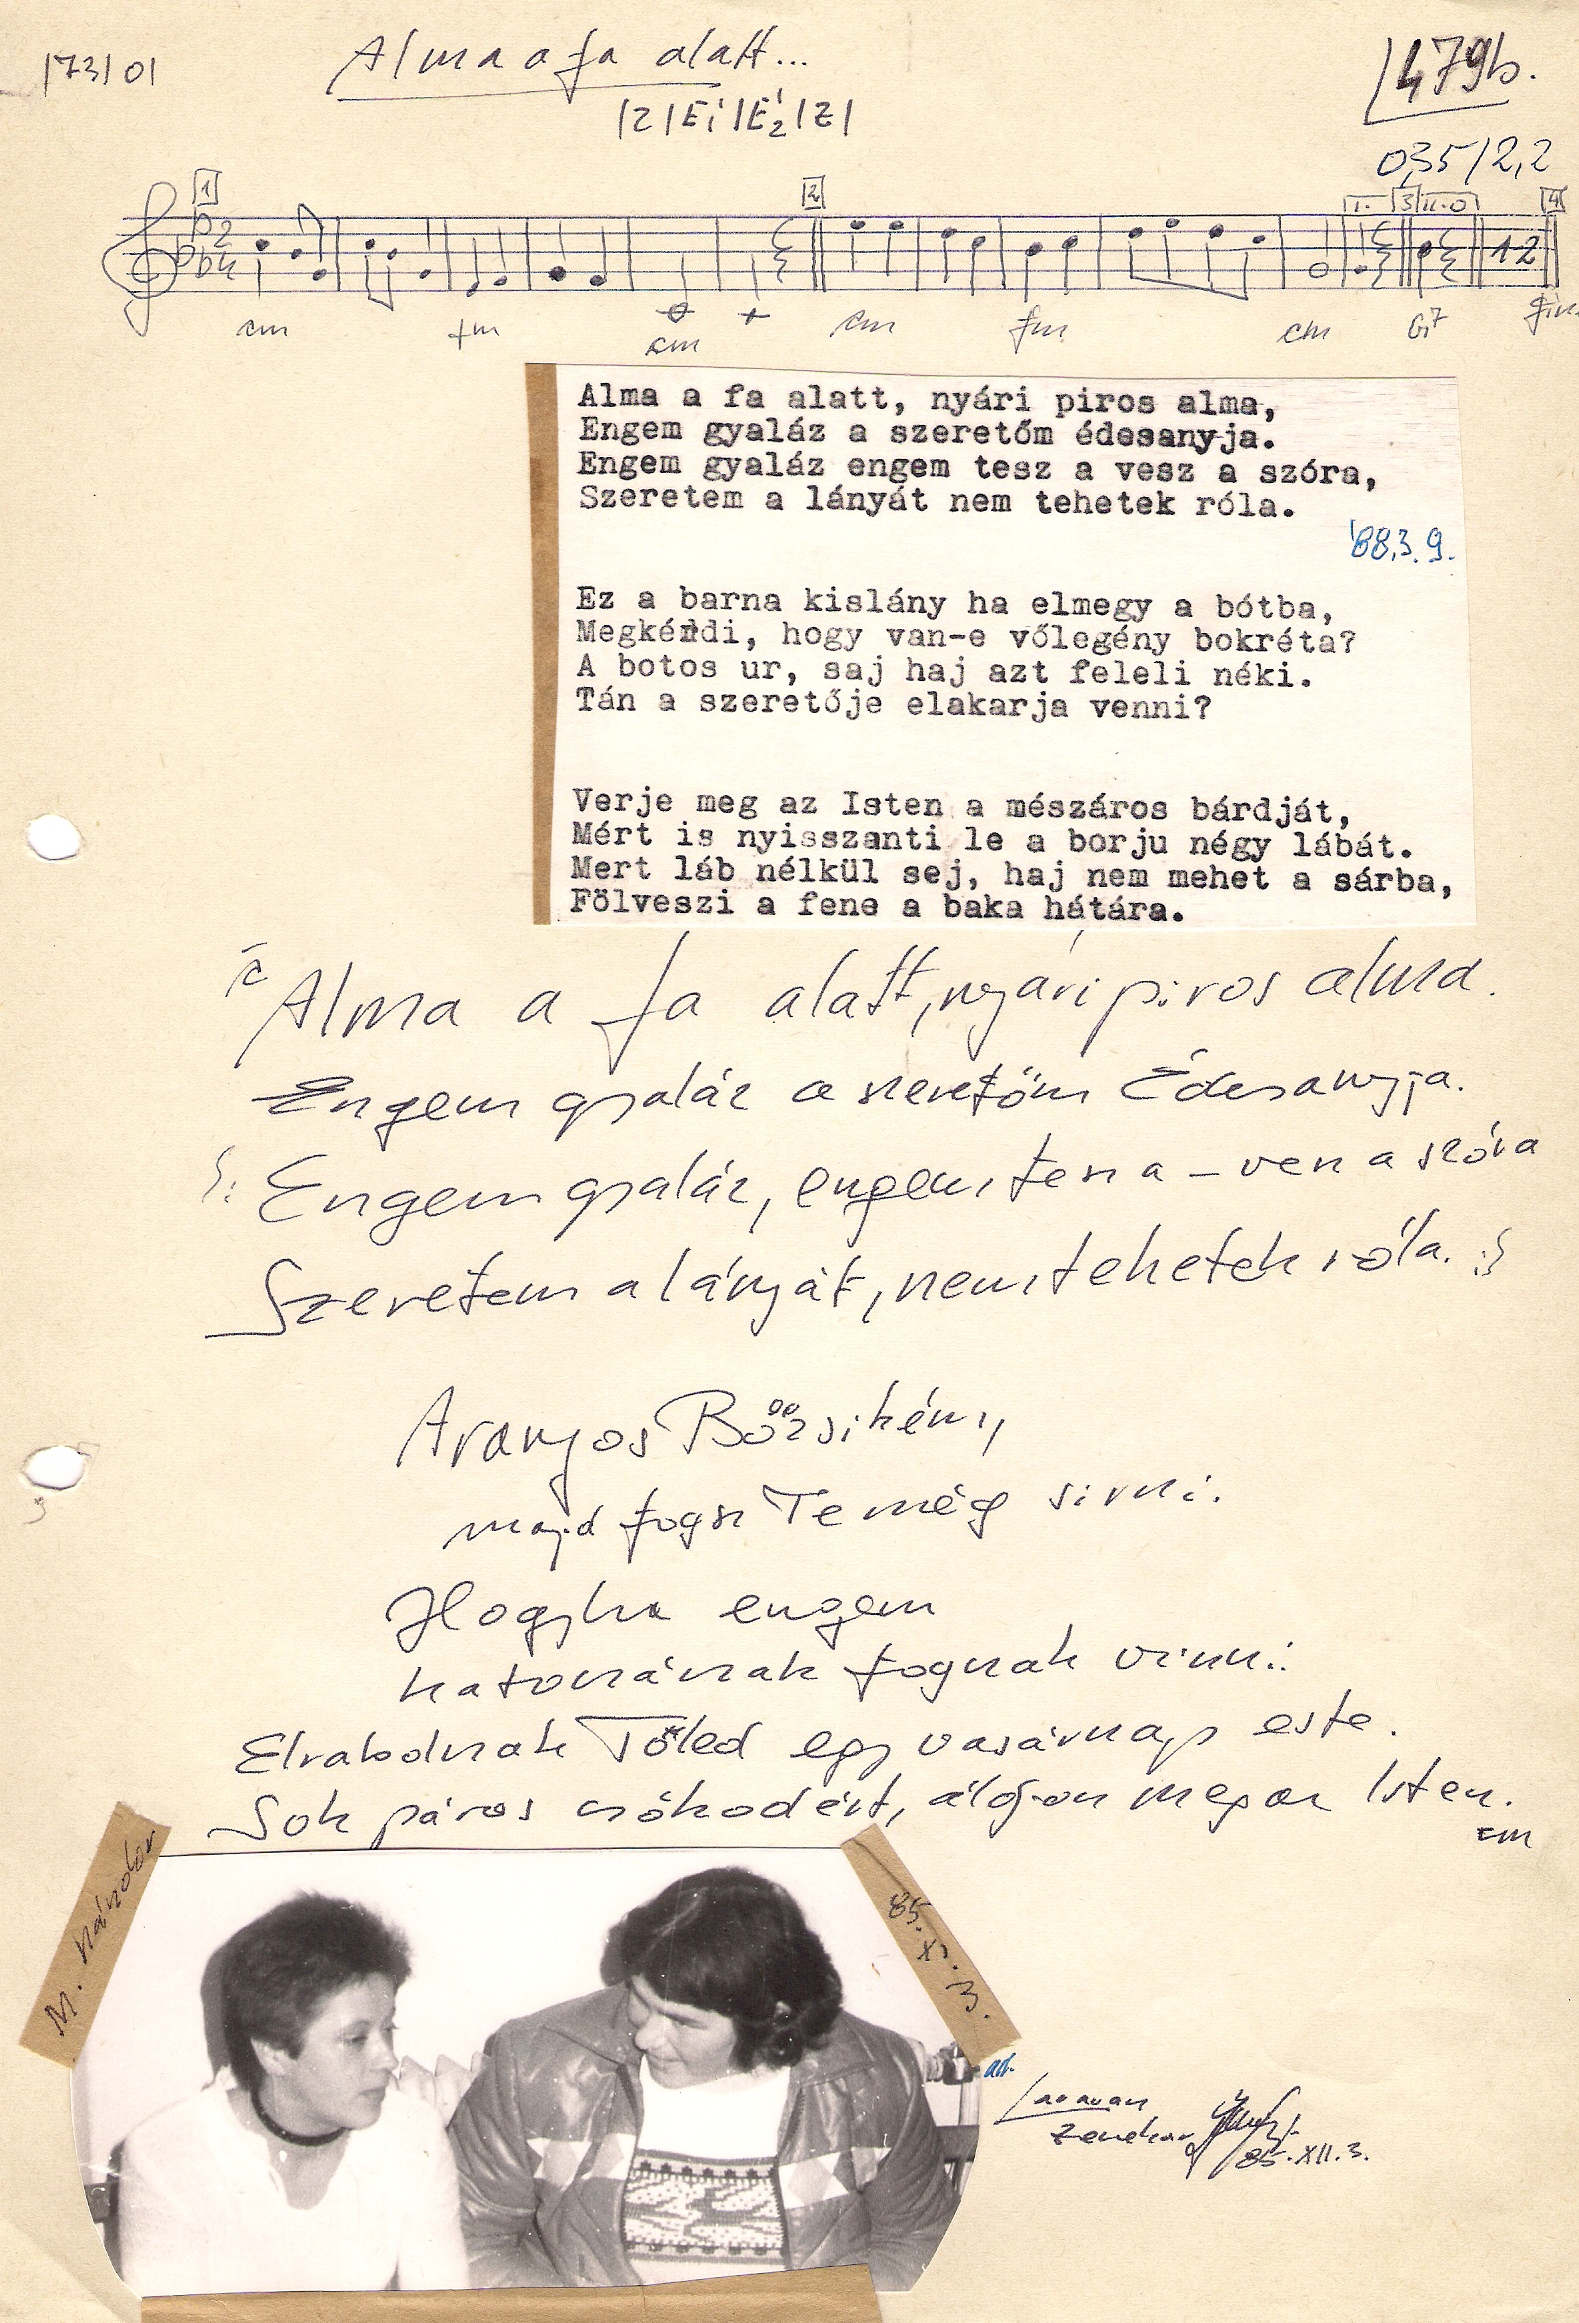 173/01
Alma a fa alatt...
479b.
|Z|E1|E2|Z|
035/2,2
1 2 I. 3 II. 4
12
cm fm cm cm fm cm G7 Fin.
Alma a fa alatt, nyári piros alma,
Engem gyaláz a szeretőm édesanyja.
Engem gyaláz engem tesz a vesz a szóra,
Szeretem a lányát nem tehetek róla.
'88.3.9.
Ez a barna kislány ha elmegy a bótba,
Megkérdi, hogy van-e vőlegény bokréta?
A botos ur, saj haj azt feleli néki.
Tán a szeretője elakarja venni?
Verje meg az Isten a mészáros bárdját,
Mért is nyisszanti le a borju négy lábát.
Mert láb nélkül sej, haj nem mehet a sárba,
Fölveszi a fene a baka hátára.
Alma a fa alatt, nyári piros alma.
Engem gyaláz a szeretőm Édesanyja.
Engem gyaláz, engem tesz a - vesz a szóra
Szeretem a lányát, nem tehetek róla.
Aranyos Bözsikém,
majd fogsz Te még sirni.
Hogyha engem
katonának fognak vinni
Elrabolnak Tőled egy vasárnap este.
Sok páros csókodért, áldjon meg az Isten.
cm
M. Nándor
85. XI. 3.
zenekar
85.XII.3.